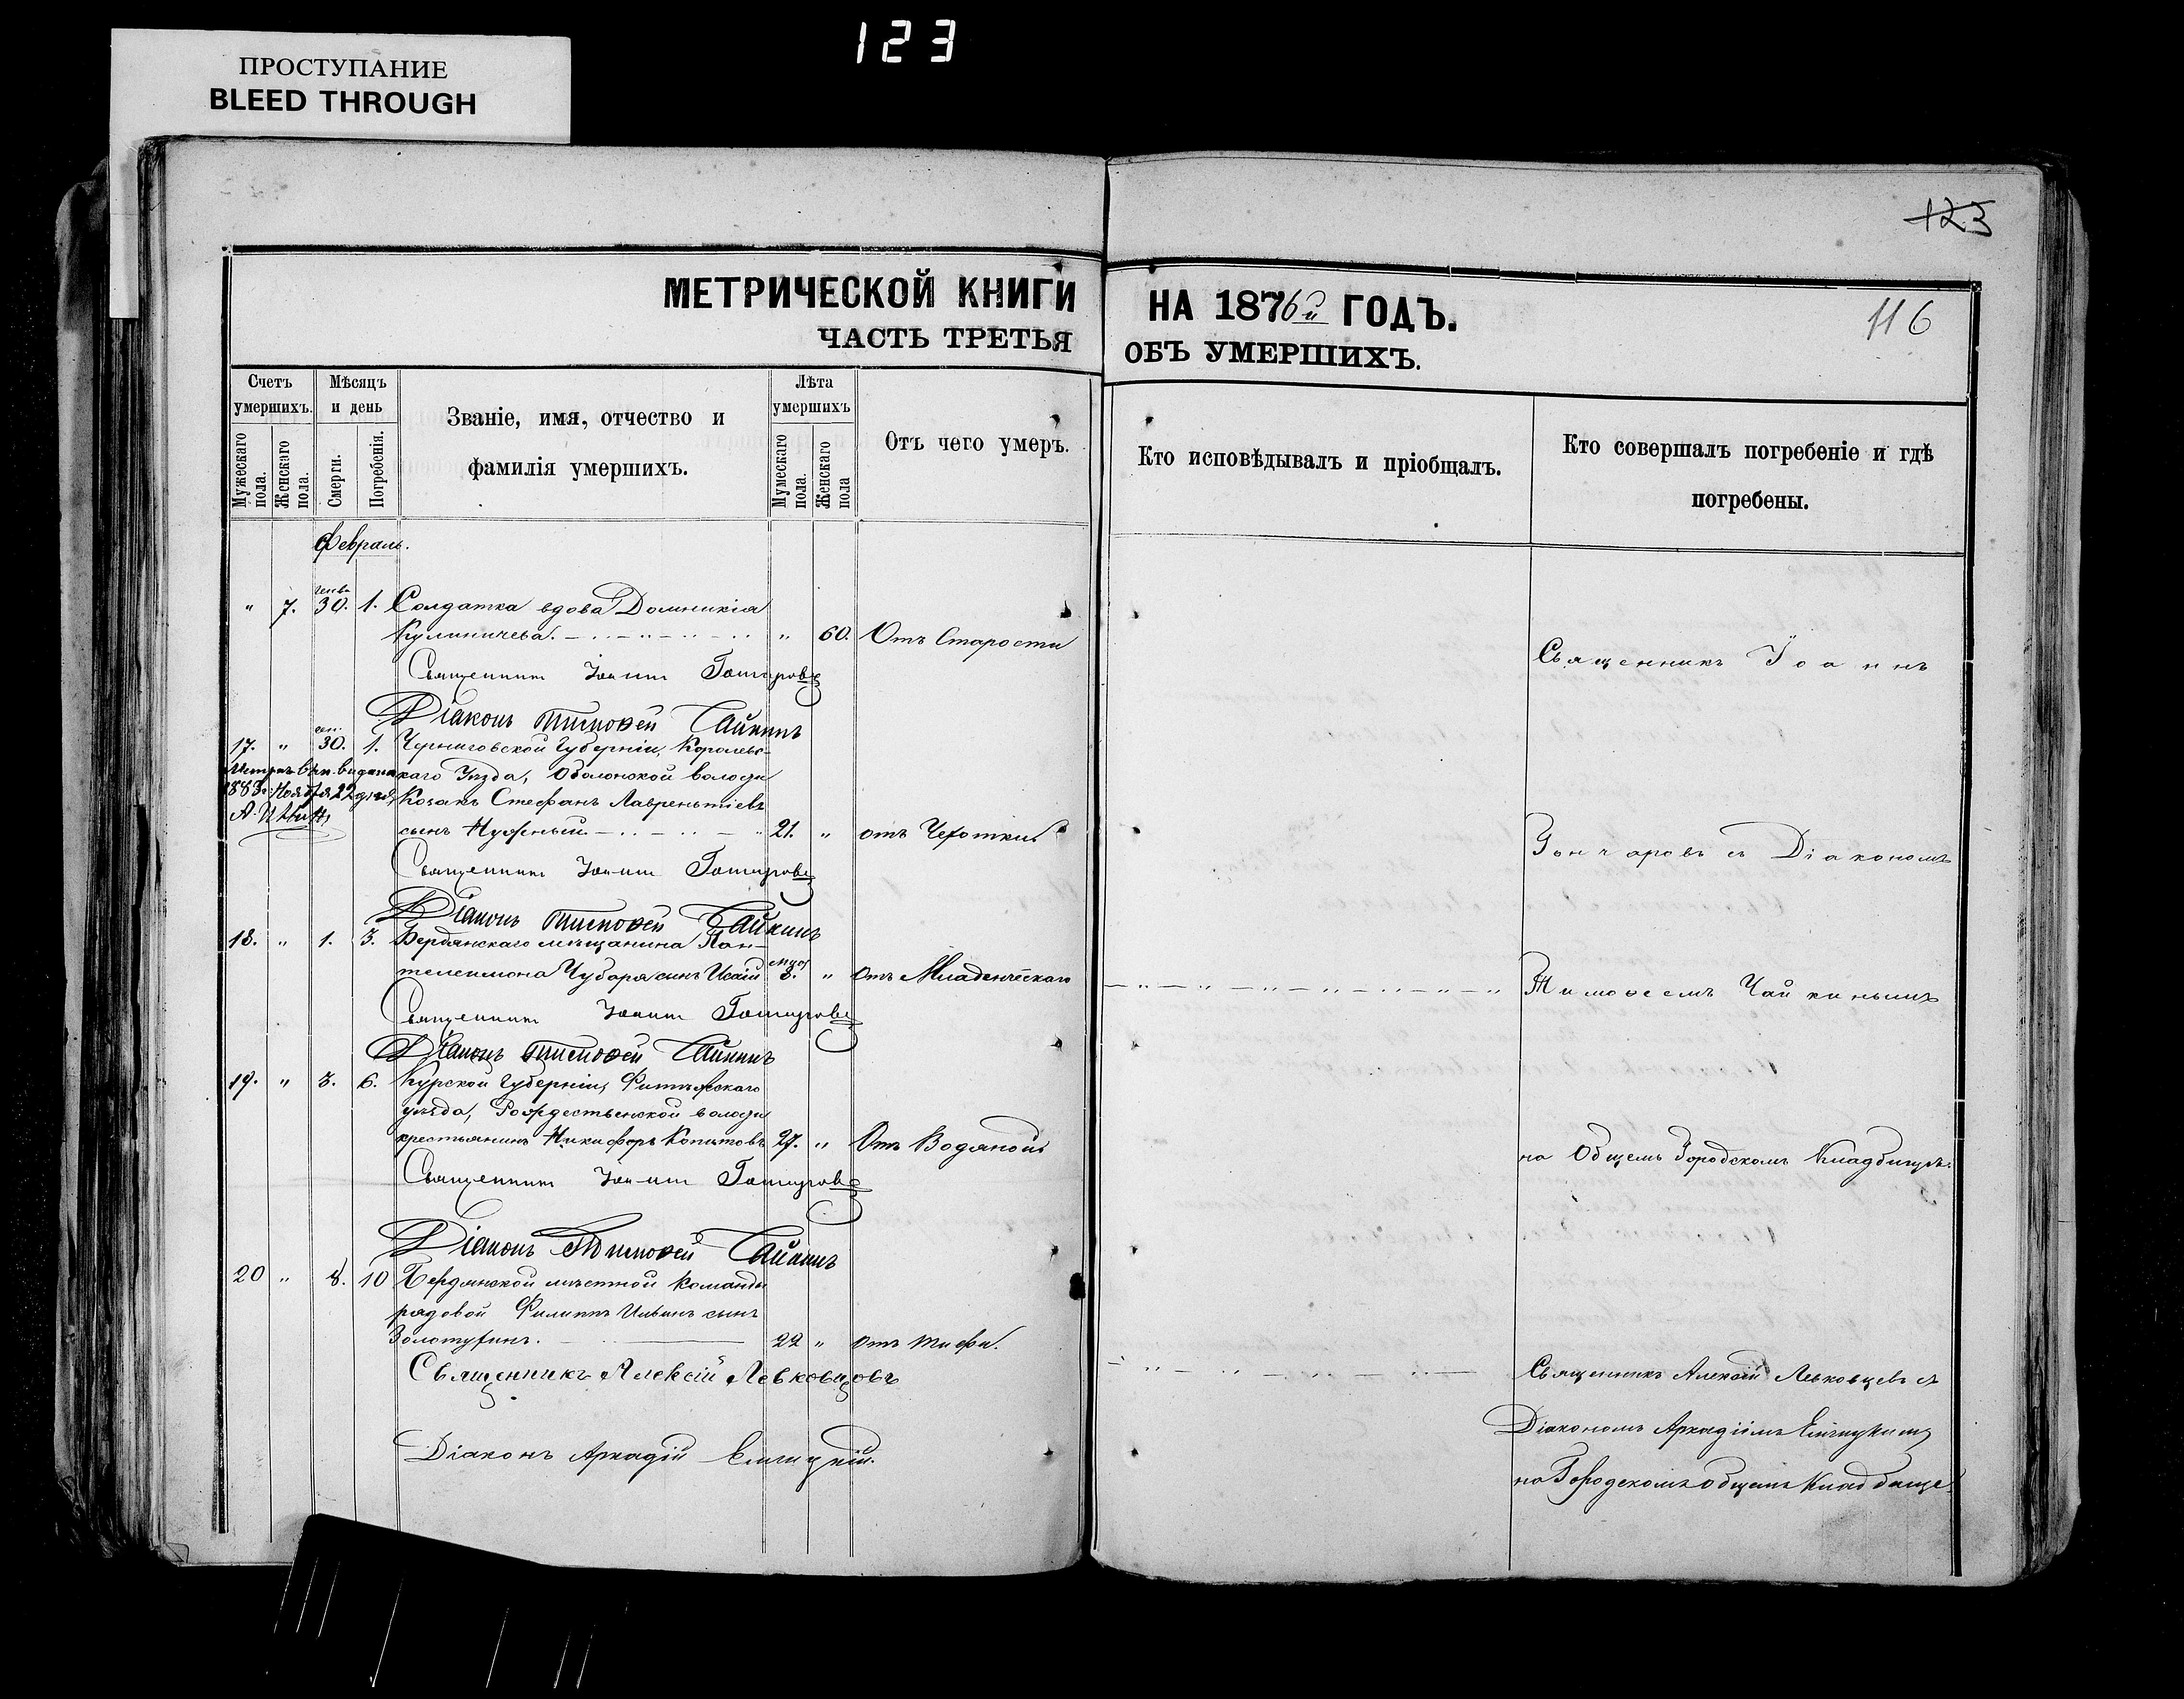 123
ПРОСТУПАНИЕ
BLEED THROUGH
123
МЕТРИЧЕСКОЙ КНИГИ НА 1876й ГОДЪ.
116
ЧАСТЬ ТРЕТЬЯ ОБЪ УМЕРШИХЪ.
Счетъ умершихъ.
Мужескаго пола.
Женскаго пола.
Мѣсяцъ и день
Смерти.
Погребенія.
Званіе, имя, отчество и
фамилія умершихъ.
Лѣта умершихъ
Мужескаго пола.
Женскаго пола
Отъ чего умеръ.
Кто исповѣдывалъ и пріобщалъ.
Кто совершалъ погребеніе и гдѣ
погребены.
Февраль.
" 7. 30. 1. Солдатка вдова Домникія
Кулиничева. " 60. Отъ Старости
Священникъ Іоаннъ
Священникъ Іоаннъ Гончаровъ
Діаконъ Тимоѳей Чайкинъ
17. " 30. 1. Черниговской Губерніи, Королевс-
каго Уѣзда, Оболонской волости
1883 г. Ноября 22 дня
Козакъ Стефанъ Лаврентіевъ
сынъ Нужный. 21. " отъ Чахотки
Гончаровъ съ Діакономъ
Священникъ Іоаннъ Гончаровъ
Діаконъ Тимоѳей Чайкинъ
18. " 1. 3. Бердянскаго мѣщанина Пан-
телеимона Чубаря сынъ Исаій 8. " Отъ Младенческаго
Тимоѳеемъ Чайкинымъ
Священникъ Іоаннъ Гончаровъ
Діаконъ Тимоѳей Чайкинъ
19. " 3. 6. Курской Губерніи,
уѣзда, Рождественской волости
крестьянинъ Никифоръ Копытовъ 27. " Отъ Водяной
на Общемъ Городскомъ Кладбищѣ.
Священникъ Іоаннъ Гончаровъ
Діаконъ Тимоѳей Чайкинъ
20 " 8. 10 Бердянской мѣстной команды
рядовой Филиппъ Ильинъ сынъ
Золотухинъ. 22 " Отъ тифа.
Священникъ Алексій Левковцовъ
Священникъ Алексій Левковцевъ съ
Діакономъ Аркадіемъ
Діаконъ Аркадій
на Городскомъ общемъ Кладбище